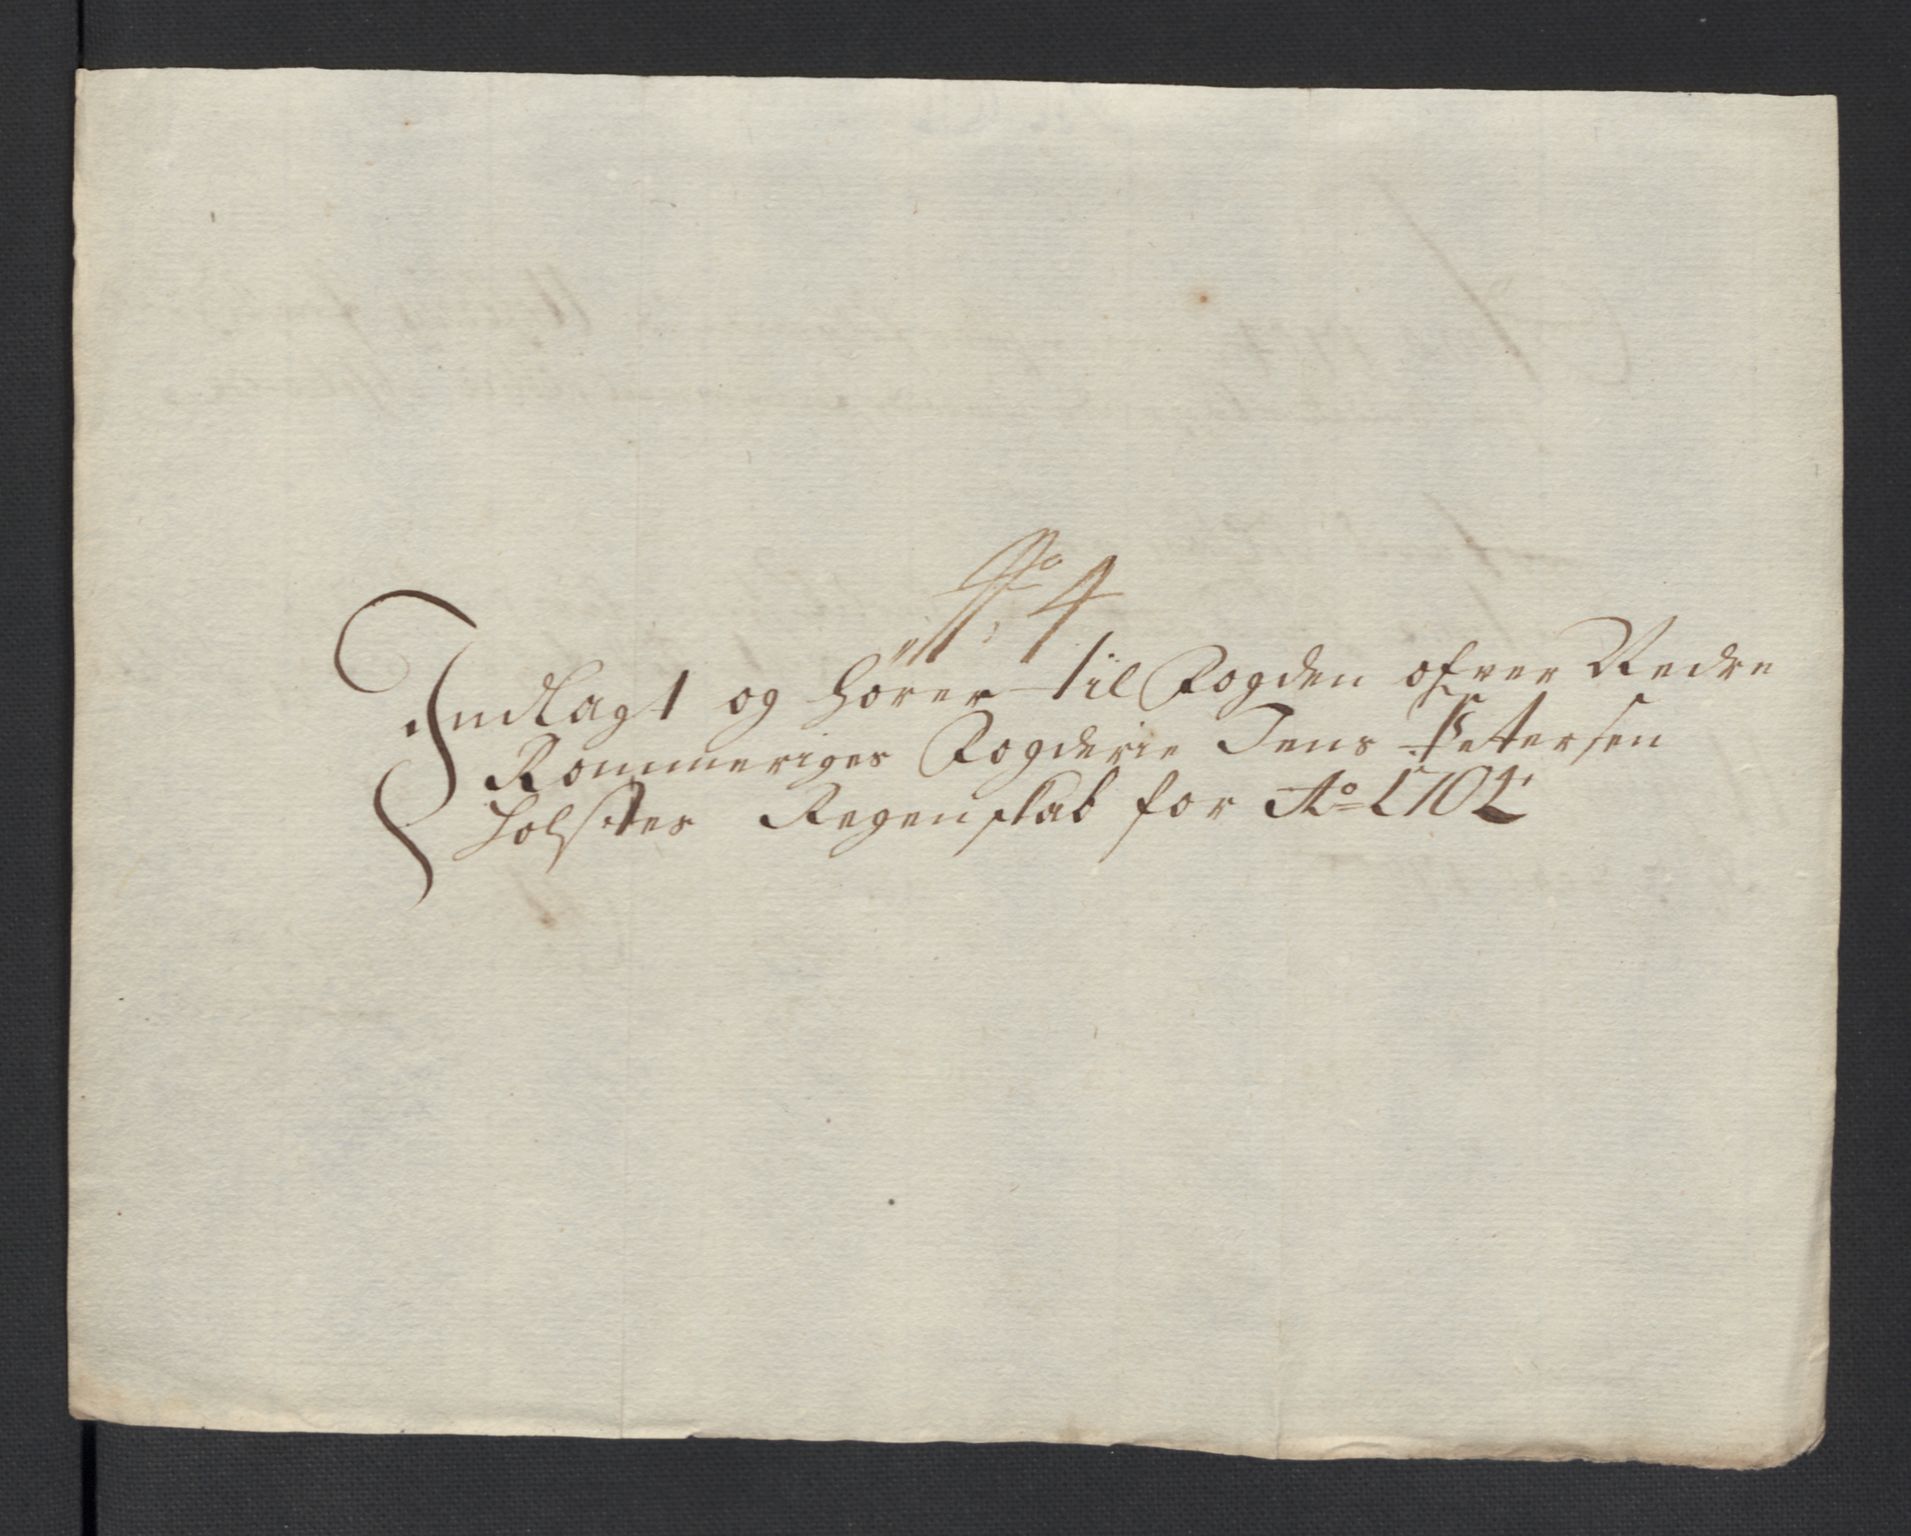 No 4
Indlagt og hører til Fogden ofver Nedre
Rommeriges Fogderie Jens Petersen
Holstes Regenskab for Ao 1704